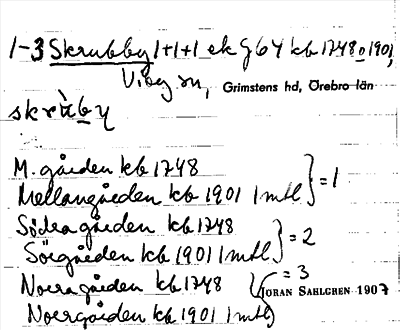 1-3 Skrubby 1+1+1 ek g 64 kb 1748 o 1901,
Viby sn, Grimstens hd, Örebro län
skrùby
M. gården kb 1748
Mellangården kb 1901 1 mtl } = 1
Södra gården kb 1748
Sörgården kb 1901 1 mtl } = 2
Norra gården kb 1748 } = 3
JÖRAN SAHLGREN 1907
Norrgården kb 1901 1 mtl